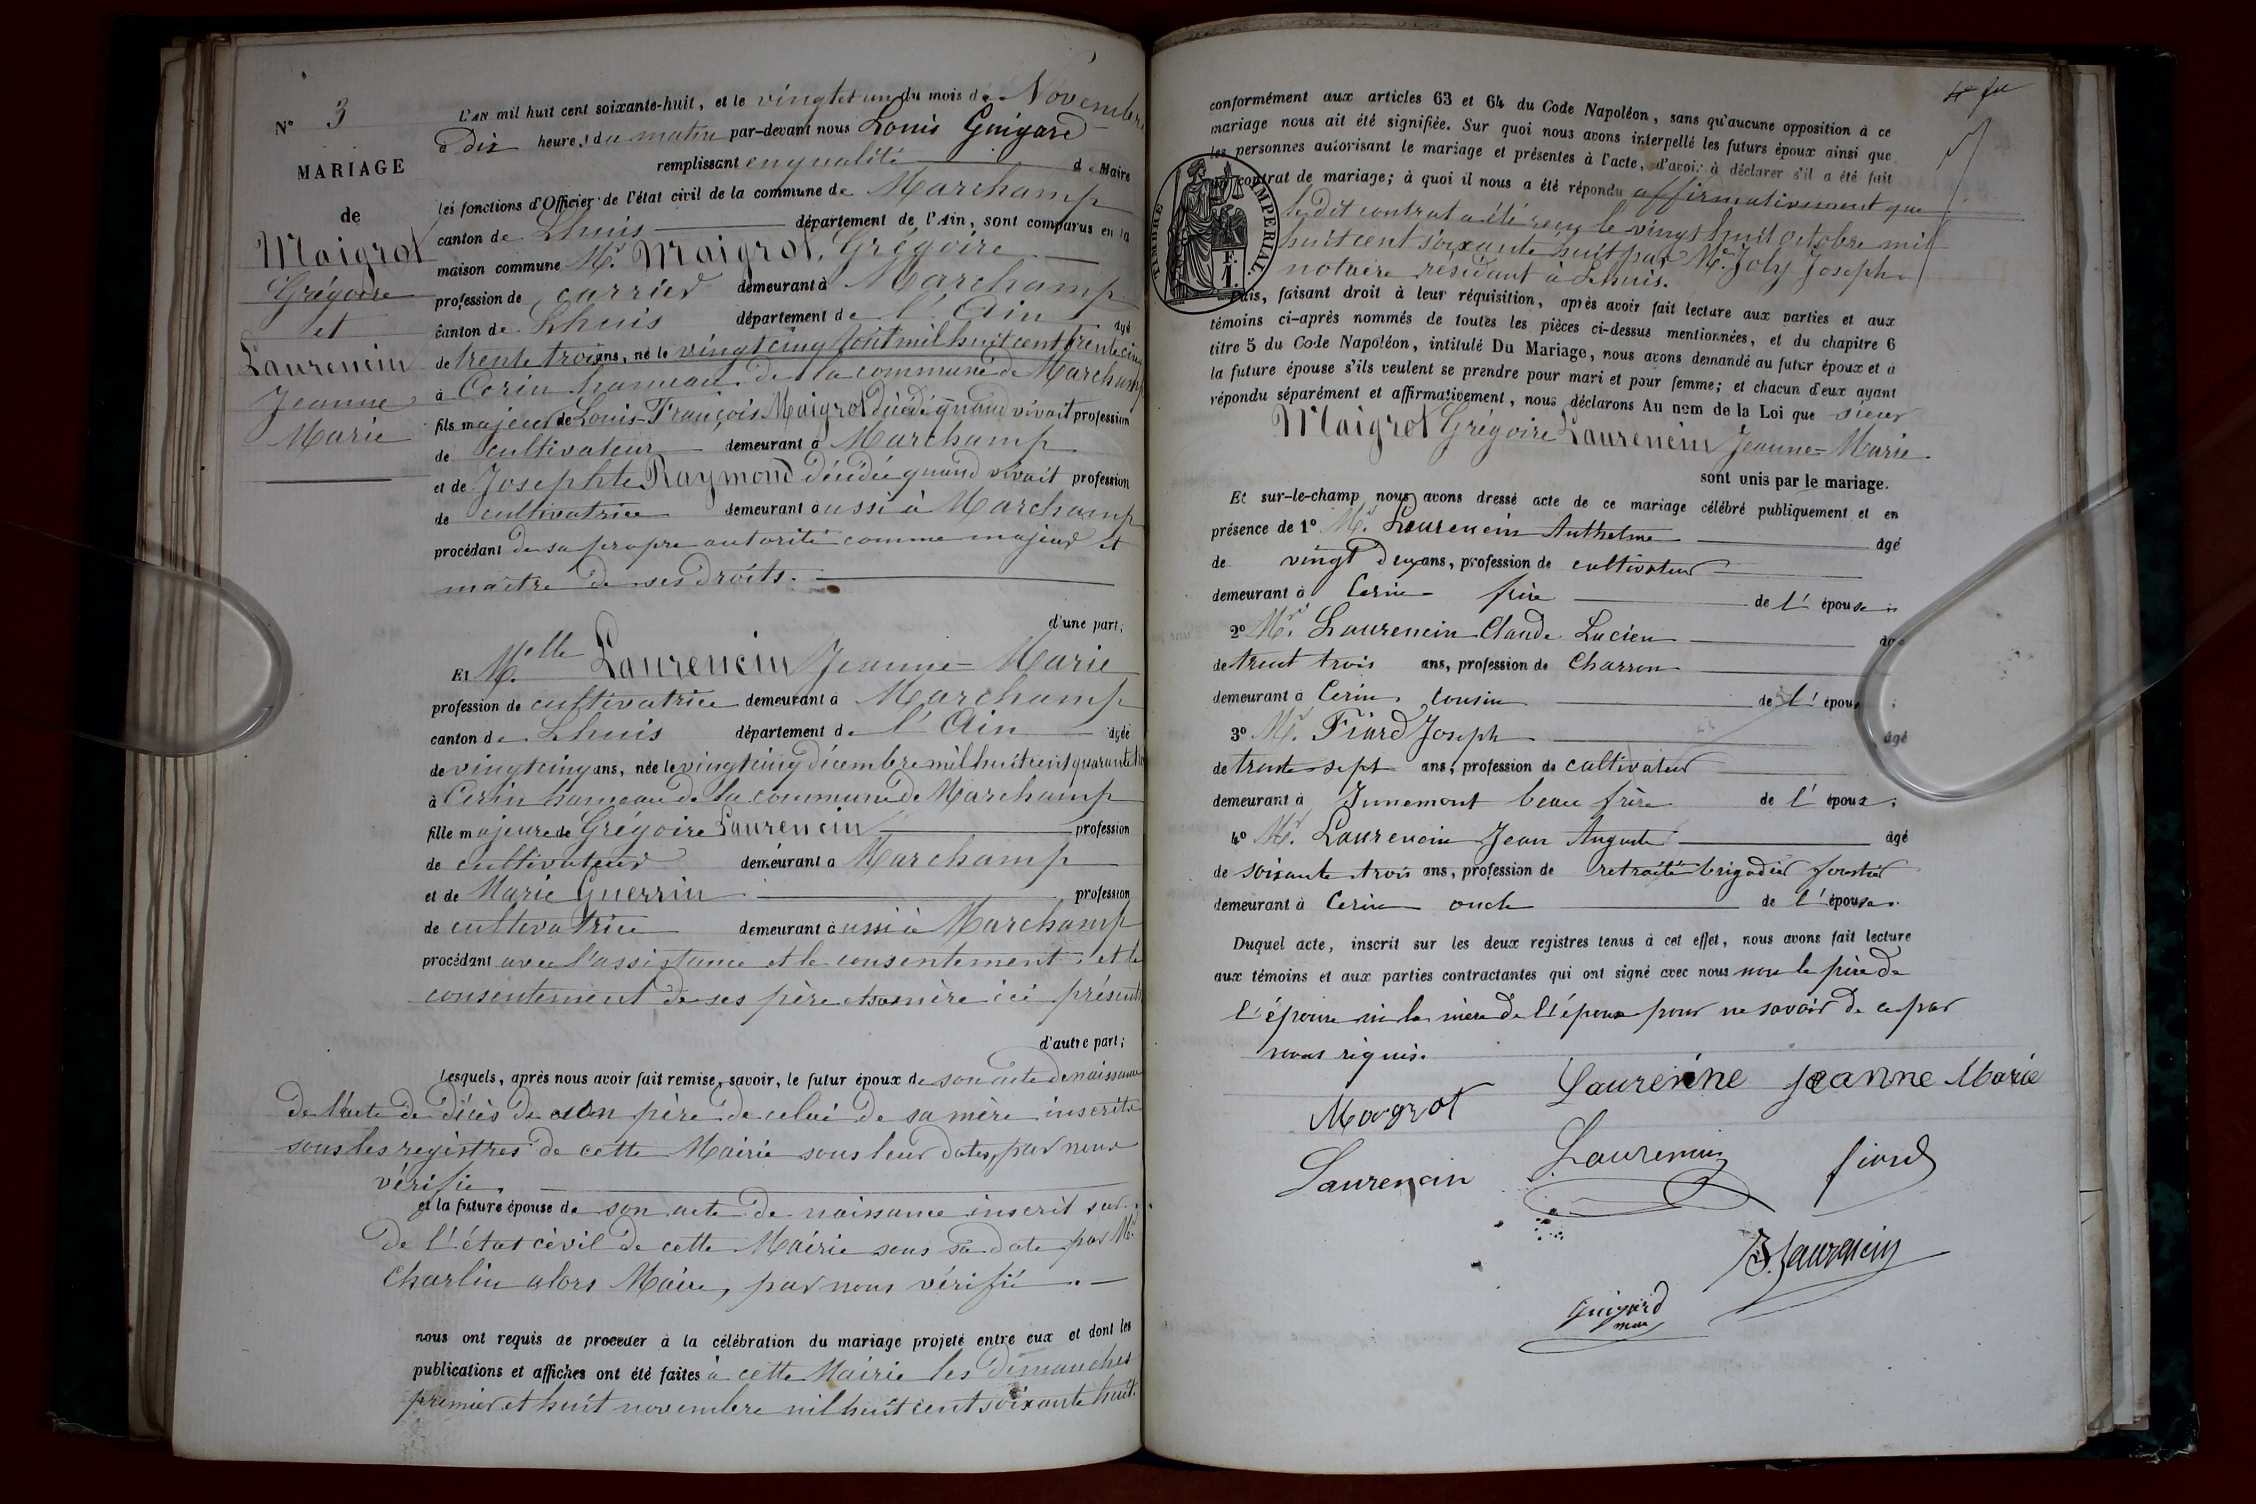 N° 3
MARIAGE
de
Maigrot
Grégoire
et
Laurencin
Jeanne
Marie
L'AN mil huit cent soixante-huit, et le vingt et un du mois de Novembre
à dix heures du matin par-devant nous Louis Guigard
remplissant en qualité de Maire
les fonctions d'Officier de l'état civil de la commune de Marchamp
canton de Lhuis département de l'Ain, sont comparus en la
maison commune Mr. Maigrot, Grégoire
profession de carrier demeurant à Marchamp
canton de Lhuis département de l'Ain âgé
de trente trois ans, né le vingt cinq août mil huit cent trente cinq
à Cerin hameau de la commune de Marchamp
fils majeur de Louis-François Maigrot décédé quand vivait profession
de cultivateur demeurant à Marchamp
et de Josephte Raymond décédée quand vivait profession
de cultivatrice demeurant aussi à Marchamp
procédant de sa propre autorité comme majeur et
maître de ses droits.
d'une part;
Et Melle Laurencin Jeanne-Marie
profession de cultivatrice demeurant à Marchamp
canton de Lhuis département de l'Ain âgée
de vingt cinq ans, née le vingt cinq décembre mil huit cent quarante
à Cerin hameau de la commune de Marchamp
fille majeure de Grégoire Laurencin profession
de cultivateur demeurant à Marchamp
et de Marie Guerrin profession
de cultivatrice demeurant aussi à Marchamp
procédant avec l'assistance et le consentement et le
consentement de ses père et mère ici présents
d'autre part;
Lesquels, après nous avoir fait remise, savoir, le futur époux de son acte de naissance
de l'acte de décès de son père de celui de sa mère inscrits
sous les registres de cette Mairie sous leur dates, par nous
vérifié.
et la future épouse de son acte de naissance inscrit sur
de l'état civil de cette Mairie sous sa date par Mr
Charlin alors Maire, par nous vérifié.
nous ont requis de procéder à la célébration du mariage projeté entre eux et dont les
publications et affiches ont été faites à cette Mairie les dimanches
premier et huit novembre mil huit cent soixante huit.
conformément aux articles 63 et 64 du Code Napoléon, sans qu'aucune opposition à ce
mariage nous ait été signifiée. Sur quoi nous avons interpellé les futurs époux ainsi que
les personnes autorisant le mariage et présentes à l'acte, d'avoir à déclarer s'il a été fait
contrat de mariage; à quoi il nous a été répondu affirmativement que
le dit contrat a été reçu le vingt huit octobre mil
huit cent soixante huit par Me Joly Joseph
notaire résidant à Lhuis.
TIMBRE IMPERIAL.
F.
1.
Puis, faisant droit à leur réquisition, après avoir fait lecture aux parties et aux
témoins ci-après nommés de toutes les pièces ci-dessus mentionnées, et du chapitre 6
titre 5 du Code Napoléon, intitulé Du Mariage, nous avons demandé au futur époux et à
la future épouse s'ils veulent se prendre pour mari et pour femme; et chacun d'eux ayant
répondu séparément et affirmativement, nous déclarons Au nom de la Loi que sieur
Maigrot Grégoire Laurencin Jeanne-Marie
sont unis par le mariage.
Et sur-le-champ nous avons dressé acte de ce mariage célébré publiquement et en
présence de 1° Mr. Laurencin Anthelme âgé
de vingt deux ans, profession de cultivateur
demeurant à Cerin frère de l'épouse
2° Mr. Laurencin Claude Lucien âgé
de trent trois ans, profession de Charron
demeurant à Cerin cousin de l'épouse
3° Mr. Fiard Joseph âgé
de trente sept ans, profession de cultivateur
demeurant à Innemont beau frère de l'époux;
4° Mr. Laurencin Jean Auguste âgé
de soixante trois ans, profession de retraité brigadier forestier
demeurant à Cerin oncle de l'épouse.
Duquel acte, inscrit sur les deux registres tenus à cet effet, nous avons fait lecture
aux témoins et aux parties contractantes qui ont signé avec nous non le père de
l'épouse ni la mère de l'épouse pour ne savoir de ce par
nous requis.
Laurenine Jeanne Marie
Maigrot
Laurencin Laurencin fiard
Laurencin
Guigard
maire